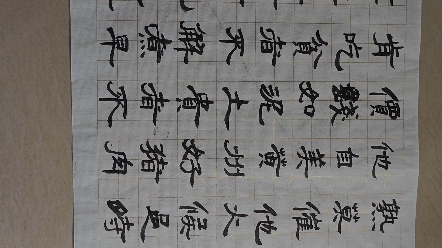 熟莫催他火候足時
他自美黃州好豬肉
價賤如泥土貴者不
肯吃貧者不解煮早